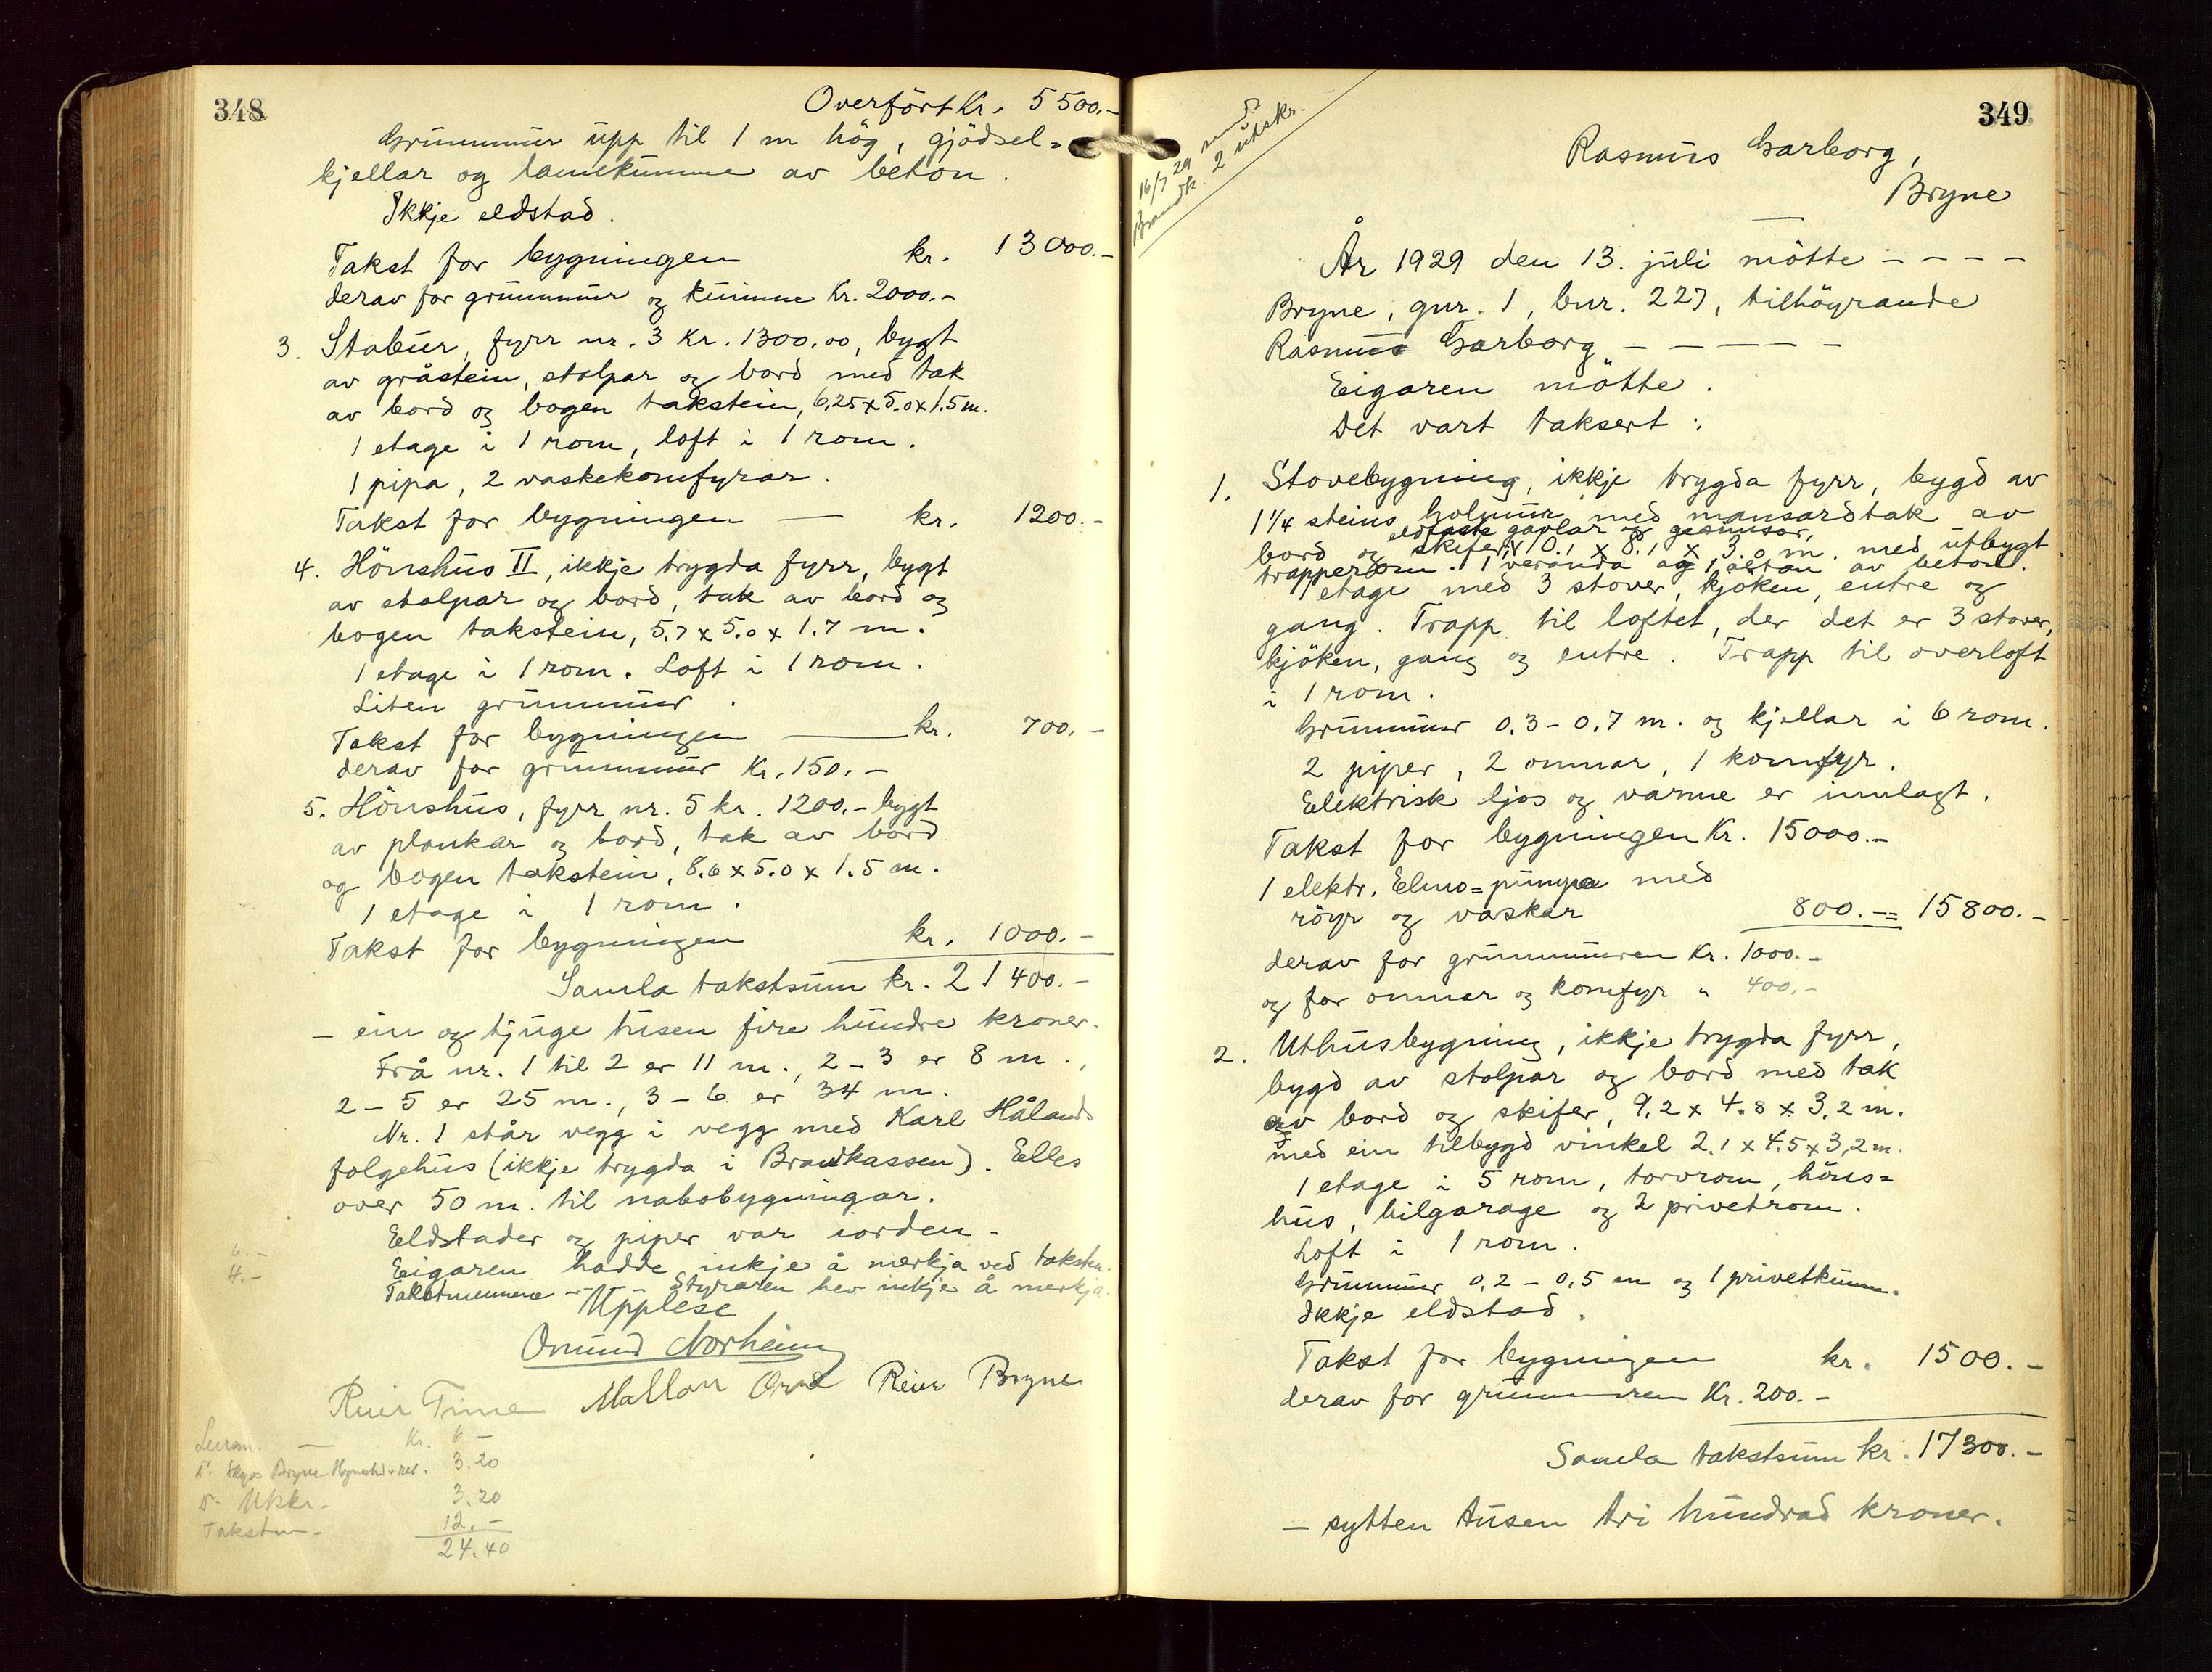 348
Overført Kr. 5500.-
Grunnmur upp til 1 m høg, gjødsel=
kjellar og landkumme av beton.
Ikkje eldstad.
Takst for bygningen kr. 13000.-
derav for grunnmur og kumme Kr. 2000.-
3. Stabur, fyrr nr. 3 Kr. 1300,00, bygt
av gråstein, stolpar og bord med tak
av bord og bogen takstein, 6,25 x 5.0 x 1.5 m.
1 etage i 1 rom, loft i 1 rom.
1 pipa, 2 vaskekomfyrar.
Takst for bygningen — kr. 1200.-
4. Hönshus II, ikkje trygda fyrr, bygt
av stolpar og bord, tak av bord og
bogen takstein, 5.7 x 5.0 x 1.7 m.
1 etage i 1 rom. Loft i 1 rom.
Liten grunnmur.
Takst for bygningen — kr. 700.-
derav for grunnmur Kr. 150.-
5. Hönshus, fyrr nr. 5 kr. 1200.- bygt
av plankar og bord, tak av bord
og bogen takstein, 8.6 x 5.0 x 1.5 m.
1 etage i 1 rom.
Takst for bygningen kr. 1000.-
Samla takstsum kr. 21400.-
- ein og tjuge tusen fire hundre kroner.
Frå nr. 1 til 2 er 11 m., 2-3 er 8 m.,
2-5 er 25 m., 3-6 er 34 m.
Nr. 1 står vegg i vegg med Karl Hålands
folgehus (ikkje trygda i Brandkassen). Elles
over 50 m. til nabobygningar.
Eldstader og piper var iorden.
Eigaren hadde inkje å merkja ved taksten.
Takstmennene - Styraren hev inkje å merkja.
Upplese
Omund Norheim
Reier Time Reier Bryne
6.-
4.-
Kr. 6 -
3.20
Utskr. 3.20
Takstm. 12.-
24.40
349
16/7 29 sendt
Brandk. 2 utskr.
Rasmus Garborg,
Bryne
År 1929 den 13. juli møtte - - - -
Bryne, gnr. 1, bnr. 227, tilhøyrande
Rasmus Garborg - - - - -
Eigaren møtte.
Det vart taksert:
1. Stovebygning, ikkje trygda fyrr, bygd av
1 1/4 steins holmur med mansardtak av
eldfaste gavlar og gesimsar,
bord og skifer, 10.1 x 8.1 x 3.0 m. med utbygt
trapperom. 1 veranda og 1 altan av beton.
1 etage med 3 stover, kjøken, entre og
gang. Trapp til loftet, der det er 3 stover,
kjøken, gang og entre. Trapp til overloft
i 1 rom.
Grunnmur 0.3 - 0.7 m. og kjellar i 6 rom.
2 piper, 2 omnar, 1 komfyr.
Elektrisk ljos og varme er innlagt.
Takst for bygningen Kr. 15000.-
1 elektr. Elmo=pumpa med
røyr og vaskar 800.- = 15800.-
derav for grunnmuren Kr. 1000.-
og for omnar og komfyr " 400.-
2. Uthusbygning, ikkje trygda fyrr,
bygd av stolpar og bord med tak
av bord og skifer, 9.2 x 4.8 x 3.2 m.
med ein tilbygd vinkel 2.1 x 4.5 x 3,2 m.
1 etage i 5 rom, torvrom, höns=
hus, bilgarage og 2 privetrom.
Loft i 1 rom.
Grunnmur 0.2 - 0.5 m og 1 privetkumm.
Ikkje eldstad.
Takst for bygningen kr. 1500.-
derav for grunnmuren Kr. 200.-
Samla takstsum kr. 17300.-
- sytten tusen tri hundrad kroner.